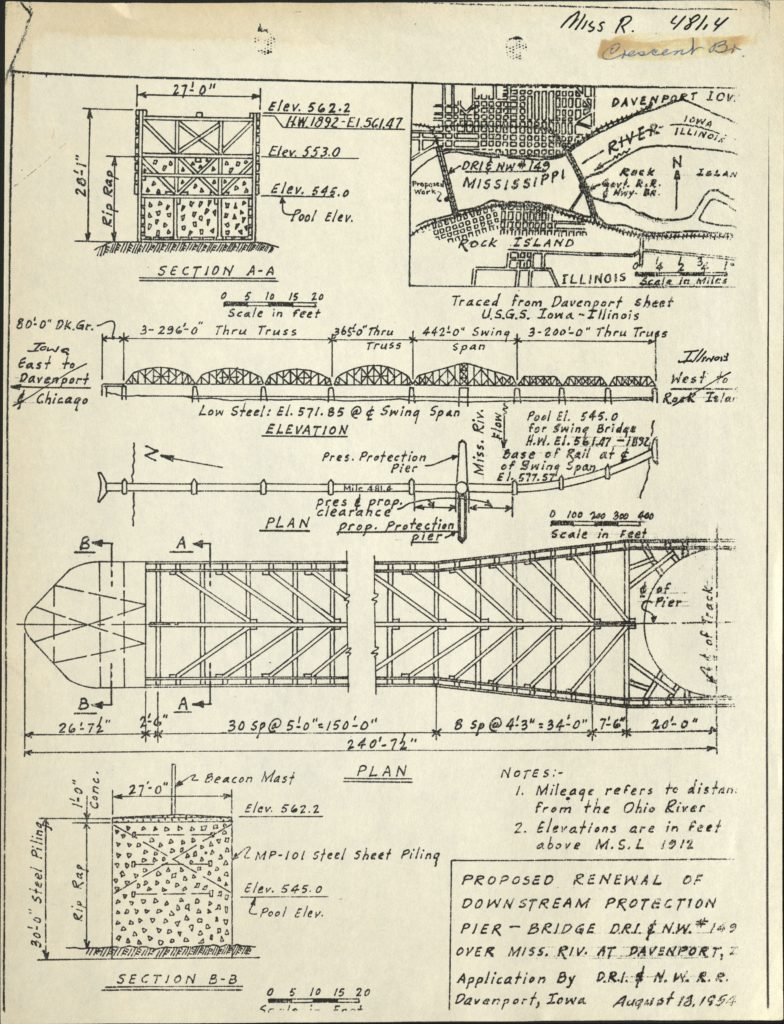 Miss R. 481.4
Crescent Br.
27'-0"
Elev. 562.2
H.W. 1892-El. 561.47
Elev. 553.0
Elev. 545.0
Pool Elev.
28'-1"
Rip Rap
SECTION A-A
0 5 10 15 20
Scale in feet
DAVENPORT IOW
IOWA
ILLINOIS
RIVER
DRI & NW #149
MISSISSIPPI
Proposed
Work
ROCK
ISLAN
Govt. R.R.
& Hwy. BR.
N
ROCK ISLAND
ILLINOIS
0 1/4 1/2 3/4 1
Scale in Miles
Traced from Davenport sheet
U.S.G.S. Iowa-Illinois
80'-0" Dk.Gr.
3-296'-0" Thru Truss
365'-0" Thru
Truss
442'-0" Swing
Span
3-200'-0" Thru Truss
Iowa
East to
Davenport
& Chicago
Illinois
West to
Rock Islan
Low Steel: El. 571.85 @ ℄ Swing Span
ELEVATION
Miss. Riv.
Flow
Pool El. 545.0
for Swing Bridge
H.W. El. 561.47-1892
Base of Rail at ℄
of Swing Span
El. 577.57
N
Pres. Protection
Pier
Mile 481.4
pres & prop.
clearance
PLAN
prop. Protection
pier
0 100 200 300 400
Scale in Feet
B
A
B
A
℄ of
Pier
℄ of Track
26'-7½"
2'-6"
30 Sp @ 5'-0"=150'-0"
8 Sp @ 4'-3"=34'-0"
7'-6"
20'-0"
240'-7½"
PLAN
Beacon Mast
27'-0"
1'-0"
Conc.
Elev. 562.2
MP-101 Steel Sheet Piling
30'-0" Steel Piling
Rip Rap
Elev. 545.0
Pool Elev.
SECTION B-B
0 5 10 15 20
Scale in Feet
NOTES:-
1. Mileage refers to distan
from the Ohio River
2. Elevations are in feet
above M.S.L 1912
PROPOSED RENEWAL OF
DOWNSTREAM PROTECTION
PIER - BRIDGE D.R.I. & N.W. # 149
OVER MISS. RIV. AT DAVENPORT, I
Application By D.R.I. & N.W. R.R.
Davenport, Iowa August 13, 1954